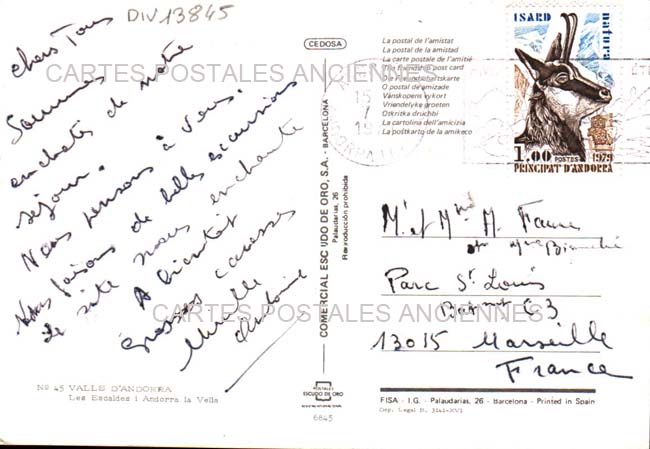 DIV13845
Chers Tous
Sommes
enchantés de notre
séjour.
Nous pensons à vous.
Nous faisons de belles excursions
Le site nous enchante
A bientôt
grosses caresses
Mireille
CARTES POSTALES ANCIENNES
CARTES POSTALES ANCIENNES
Nº 45 VALLS D'ANDORRA
Les Escaldes i Andorra la Vella
CEDOSA
COMERCIAL ESCUDO DE ORO, S.A. - BARCELONA
Palaudarias, 26
Reproducción prohibida
POSTALES
ESCUDO DE ORO
6845
La postal de l'amistat
La postal de la amistad
La carte postale de l'amitié
The friendship post card
Die Freundschaftskarte
O postal de amizade
Vänskopens vykort
Vriendelyke groeten
Otkritka druchbi
La cartolina dell'amicizia
La poŝtkarto de la amikeco
15
7
19
ISARD
natura
1.00 POSTES 1979
PRINCIPAT D'ANDORRA
Mr et Mme M. Faure
Parc St Louis
Bat C3
13015 Marseille
France
FISA - I.G. - Palaudarias, 26 - Barcelona - Printed in Spain
Dep. Legal B. 3141-XVI